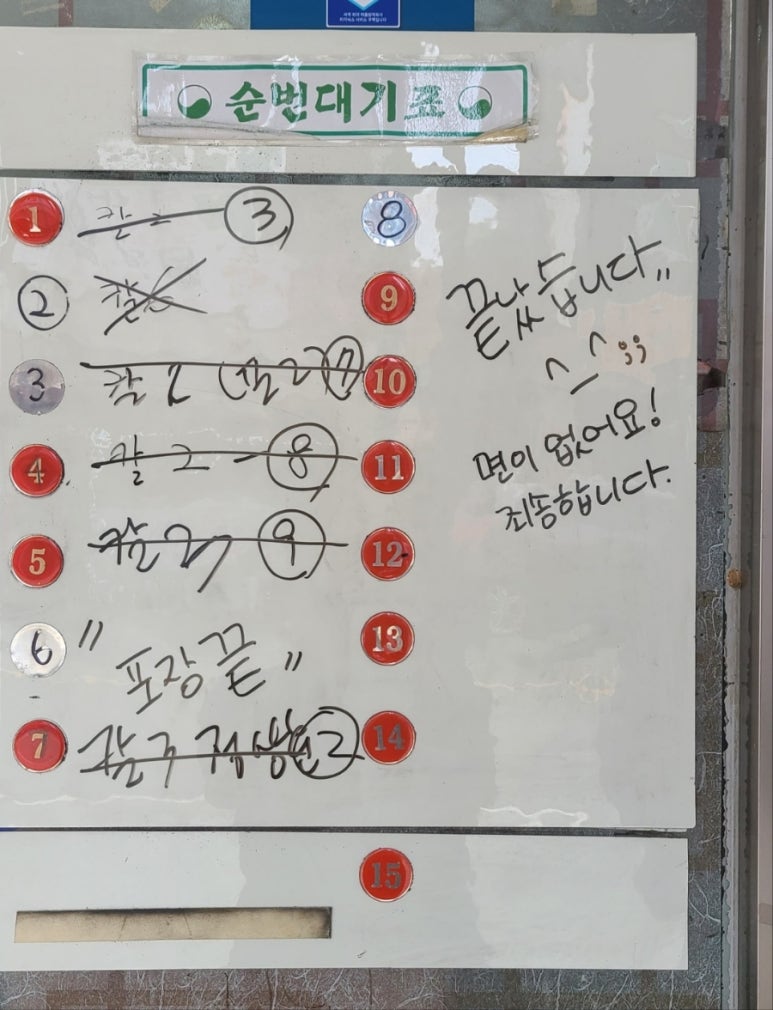 순번대기조
1 칼 2 ③
② 칼
3 칼 2 ⑦
4 칼 2 ⑧
5 칼 2 ⑨
6 " 포장끝 "
7 칼 2
8
9
10
11
12
13
14
15
끝났습니다,,
^_^;;
면이 없어요!
죄송합니다.